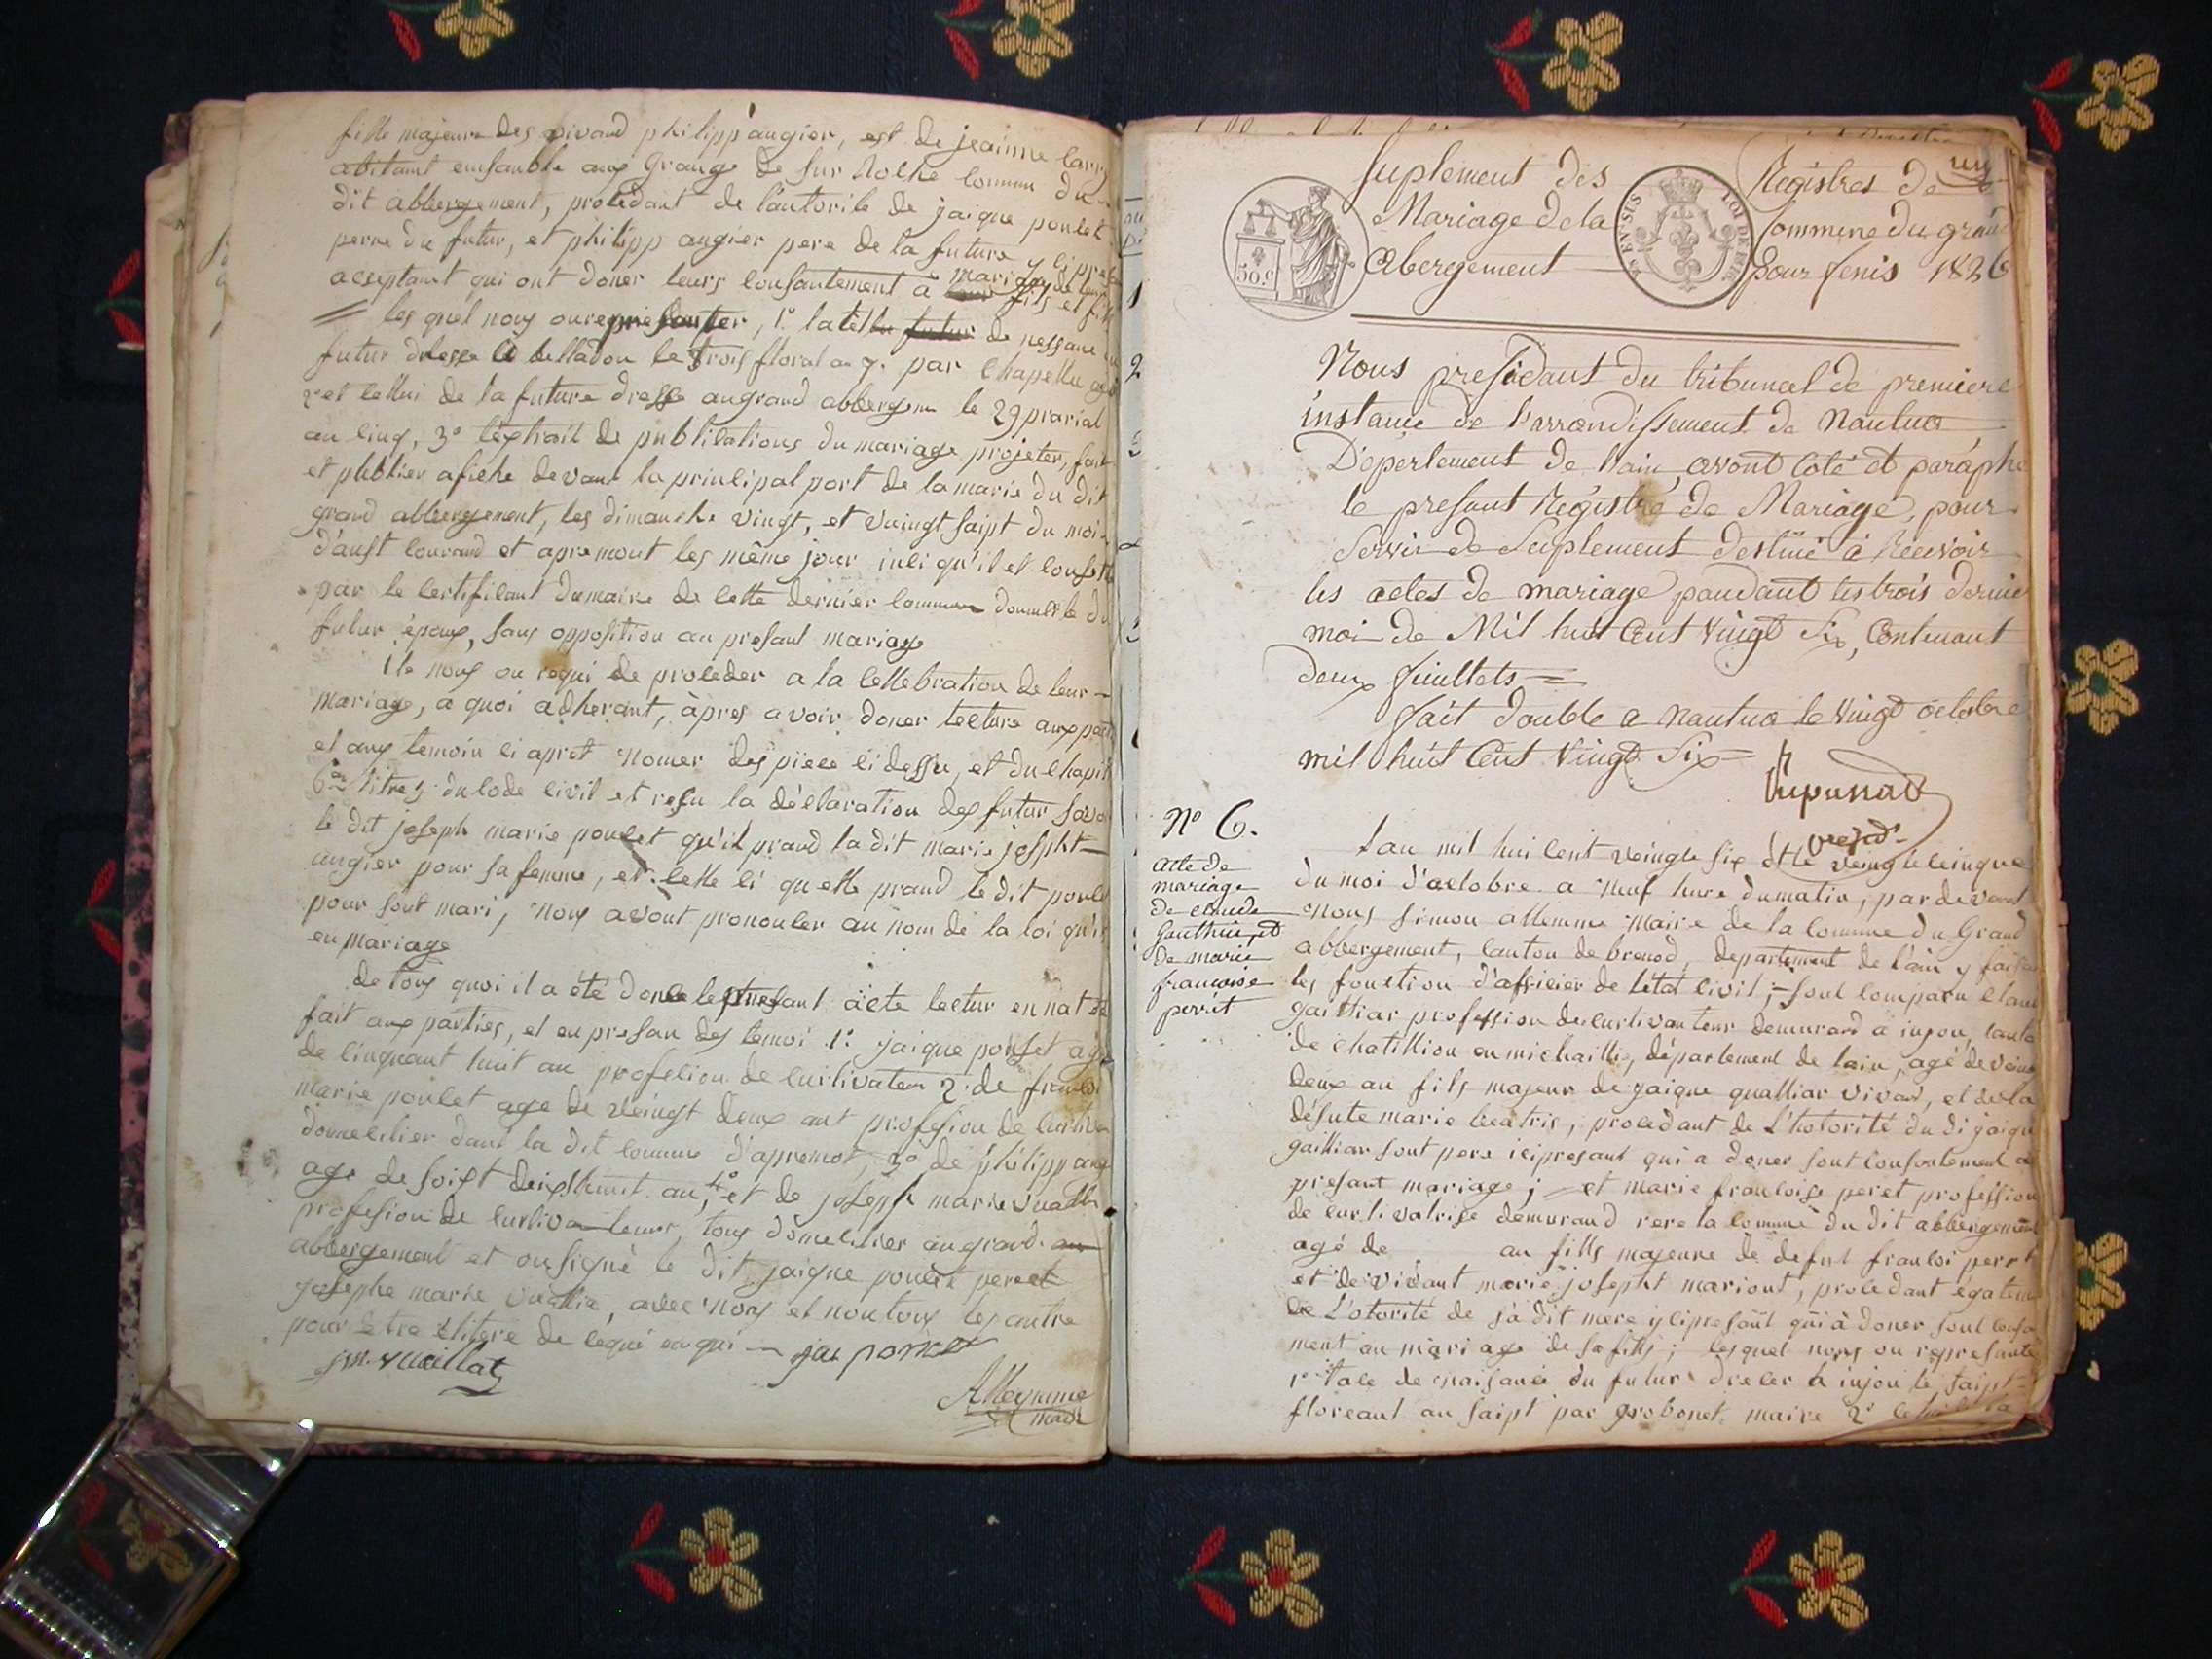 fille majeure des vivand philipp augier, est de jeainne
abitant ensanble aux Grange de sur Roche commun du
dit abbergement, procedant de l'autorite de jaique poulet
perre du futur, et philipp augier pere de la future
acseptant qui ont doner leurs consantement à mariage
les quel nous on represanter, 1° l'acte de nessance
futur dresse à belladou le trois floral an 7. par Chapellu
2° et cellui de la future dresse au grand abbergem le 29 prarial
an cinq, 3° l'extrait de publications du mariage projeter, fait
et publier afiche devant la principal port de la marie du dit
grand abbergement, les dimanche vingt, et vuingt saipt du moi
d'aust courand et apremont les même jour
par le certificant du maire de cette dernier commun domicile du
futur époux, sans opposition au presant mariage
ils nous on requi de proceder a la cellebration de leur
mariage, a quoi adherant, àpres avoir doner lecture aux
et aux temoin ci apret nomer des piece ci dessu, et du chapit
6me titre 5 du code civil et resu la déclaration des futur
le dit joseph marie poulet qu'il prand la dit marie josepht
augier pour sa femme, et celle ci quelle prand le dit poulet
pour sont mari, nous avont prononcer au nom de la loi
en mariage
de tous quoi il a été donee le presant àcte lectur en nat été
fait aux parties, et en presan des temoi 1° jaique poulet age
de cinquant huit an profesion de curtivateur 2° de
marie poulet age de veingt deux ant profesion de
domecilier dant la dit commun d'apremot, 3° de philipp
age de soixt an, 4° et de joseph marie
profesion de curtivateur, tous domecilier au grand
abbergement et on signé le dit jaique poulet
josephe marie vuallia, avec nous et non tous les autre
pour de ce
jm. vuaillat jac
Alleymme
maire
un
Suplement des Registres de
Mariage de la Commune du grand
Abergement pour fenis 1826
50.c
LOI DE
Nous presidant du tribuneal de premiere
instance de l'arrondissement de Nantua,
Departement de l'ain, avont coté et paraphé
le presant Régistre de Mariage, pour
Servir de Suplement destiné à Recevoir
les actes de mariage pandant les trois dernier
moi de Mil huit Cent Vingt Six, Contenant
deux feuillets
fait double a Nantua le Vingt octobre
mil huit Cent Vingt Six
N° 6.
acte de
mariage
de claude
Gauthier, et
de marie
francoise
peret
L'an mil hui cent veingte six et le veingt cinque
du moi d'octobre a neuf hure du matin, par devant
Nous Simon allemme Maire de la commune du Grand
abbergement, canton de brenod, departement de l'ain y faisan
les fonction d'afficier de l'état civil; sont comparu
profession de curtivanteur demurand a injou,
de chatillion en michaille, département de lain, agé de
deux an fils majeur de jaique vivand, et de la
défute marie beatris, procedant de l'hotorité du di jaique
sont pere icipresant qui a doner sont consantement a
presant mariage; et marie francoise peret profession
de curtivatrise demurand rere la commune du dit abbergement
agé de an fills majeure de defut francoi perret
et de vivant marie josepht mariont, procedant égalem
de l'otorité de sà dit mere y cipresant qui à doner sont
ment au mariage de sa fills; lesquel nous on represanté
1° l'ace de naisance du futur dreser à injou le saipt
floreant an saipt par grobonet maire 2°